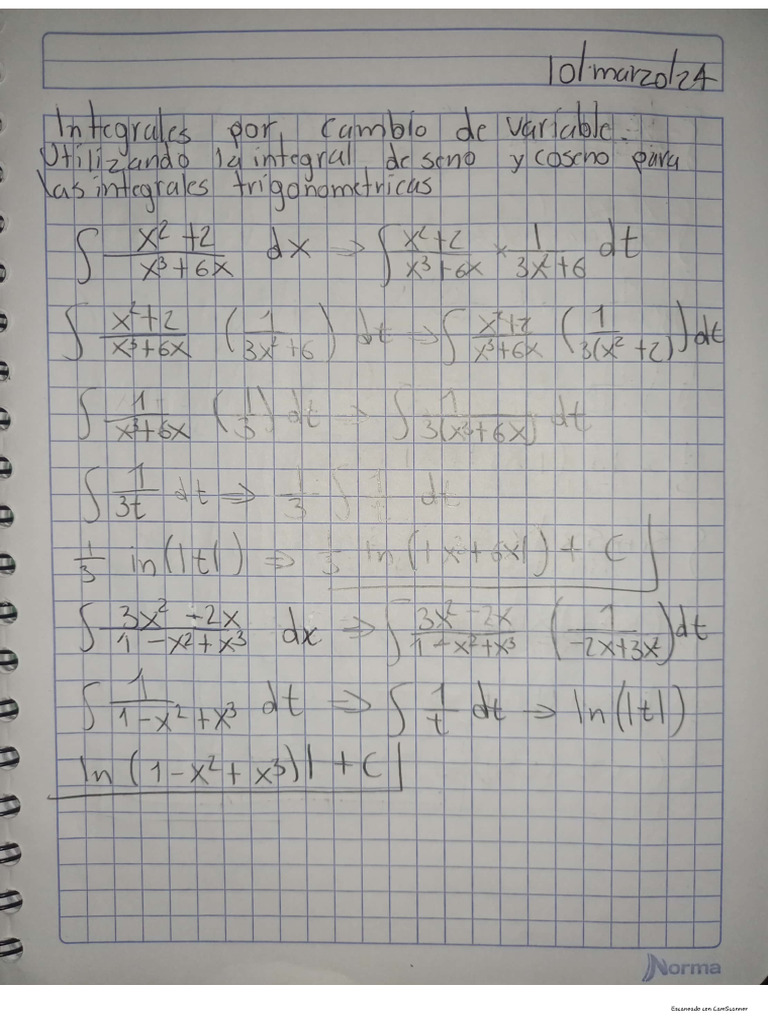 10/marzo/24
Integrales por cambio de variable.
Utilizando la integral de seno y coseno para
las integrales trigonometricas
∫ x²+2 / x³+6x dx → ∫ x²+2 / x³+6x × 1 / 3x²+6 dt
∫ x²+2 / x³+6x (1 / 3x²+6) dt → ∫ x²+2 / x³+6x (1 / 3(x²+2)) dt
∫ 1 / x³+6x (1/3) dt ⇒ ∫ 1 / 3(x³+6x) dt
∫ 1/3t dt ⇒ 1/3 ∫ dt
1/3 in(|t|) ⇒ 1/3 ln(|x³+6x|) + C
∫ 3x²-2x / 1-x²+x³ dx ⇒ ∫ 3x²-2x / 1-x²+x³ (1 / -2x+3x²) dt
∫ 1 / 1-x²+x³ dt ⇒ ∫ 1/t dt → ln(|t|)
ln(1-x²+x³)| + C
Norma
Escaneado con CamScanner